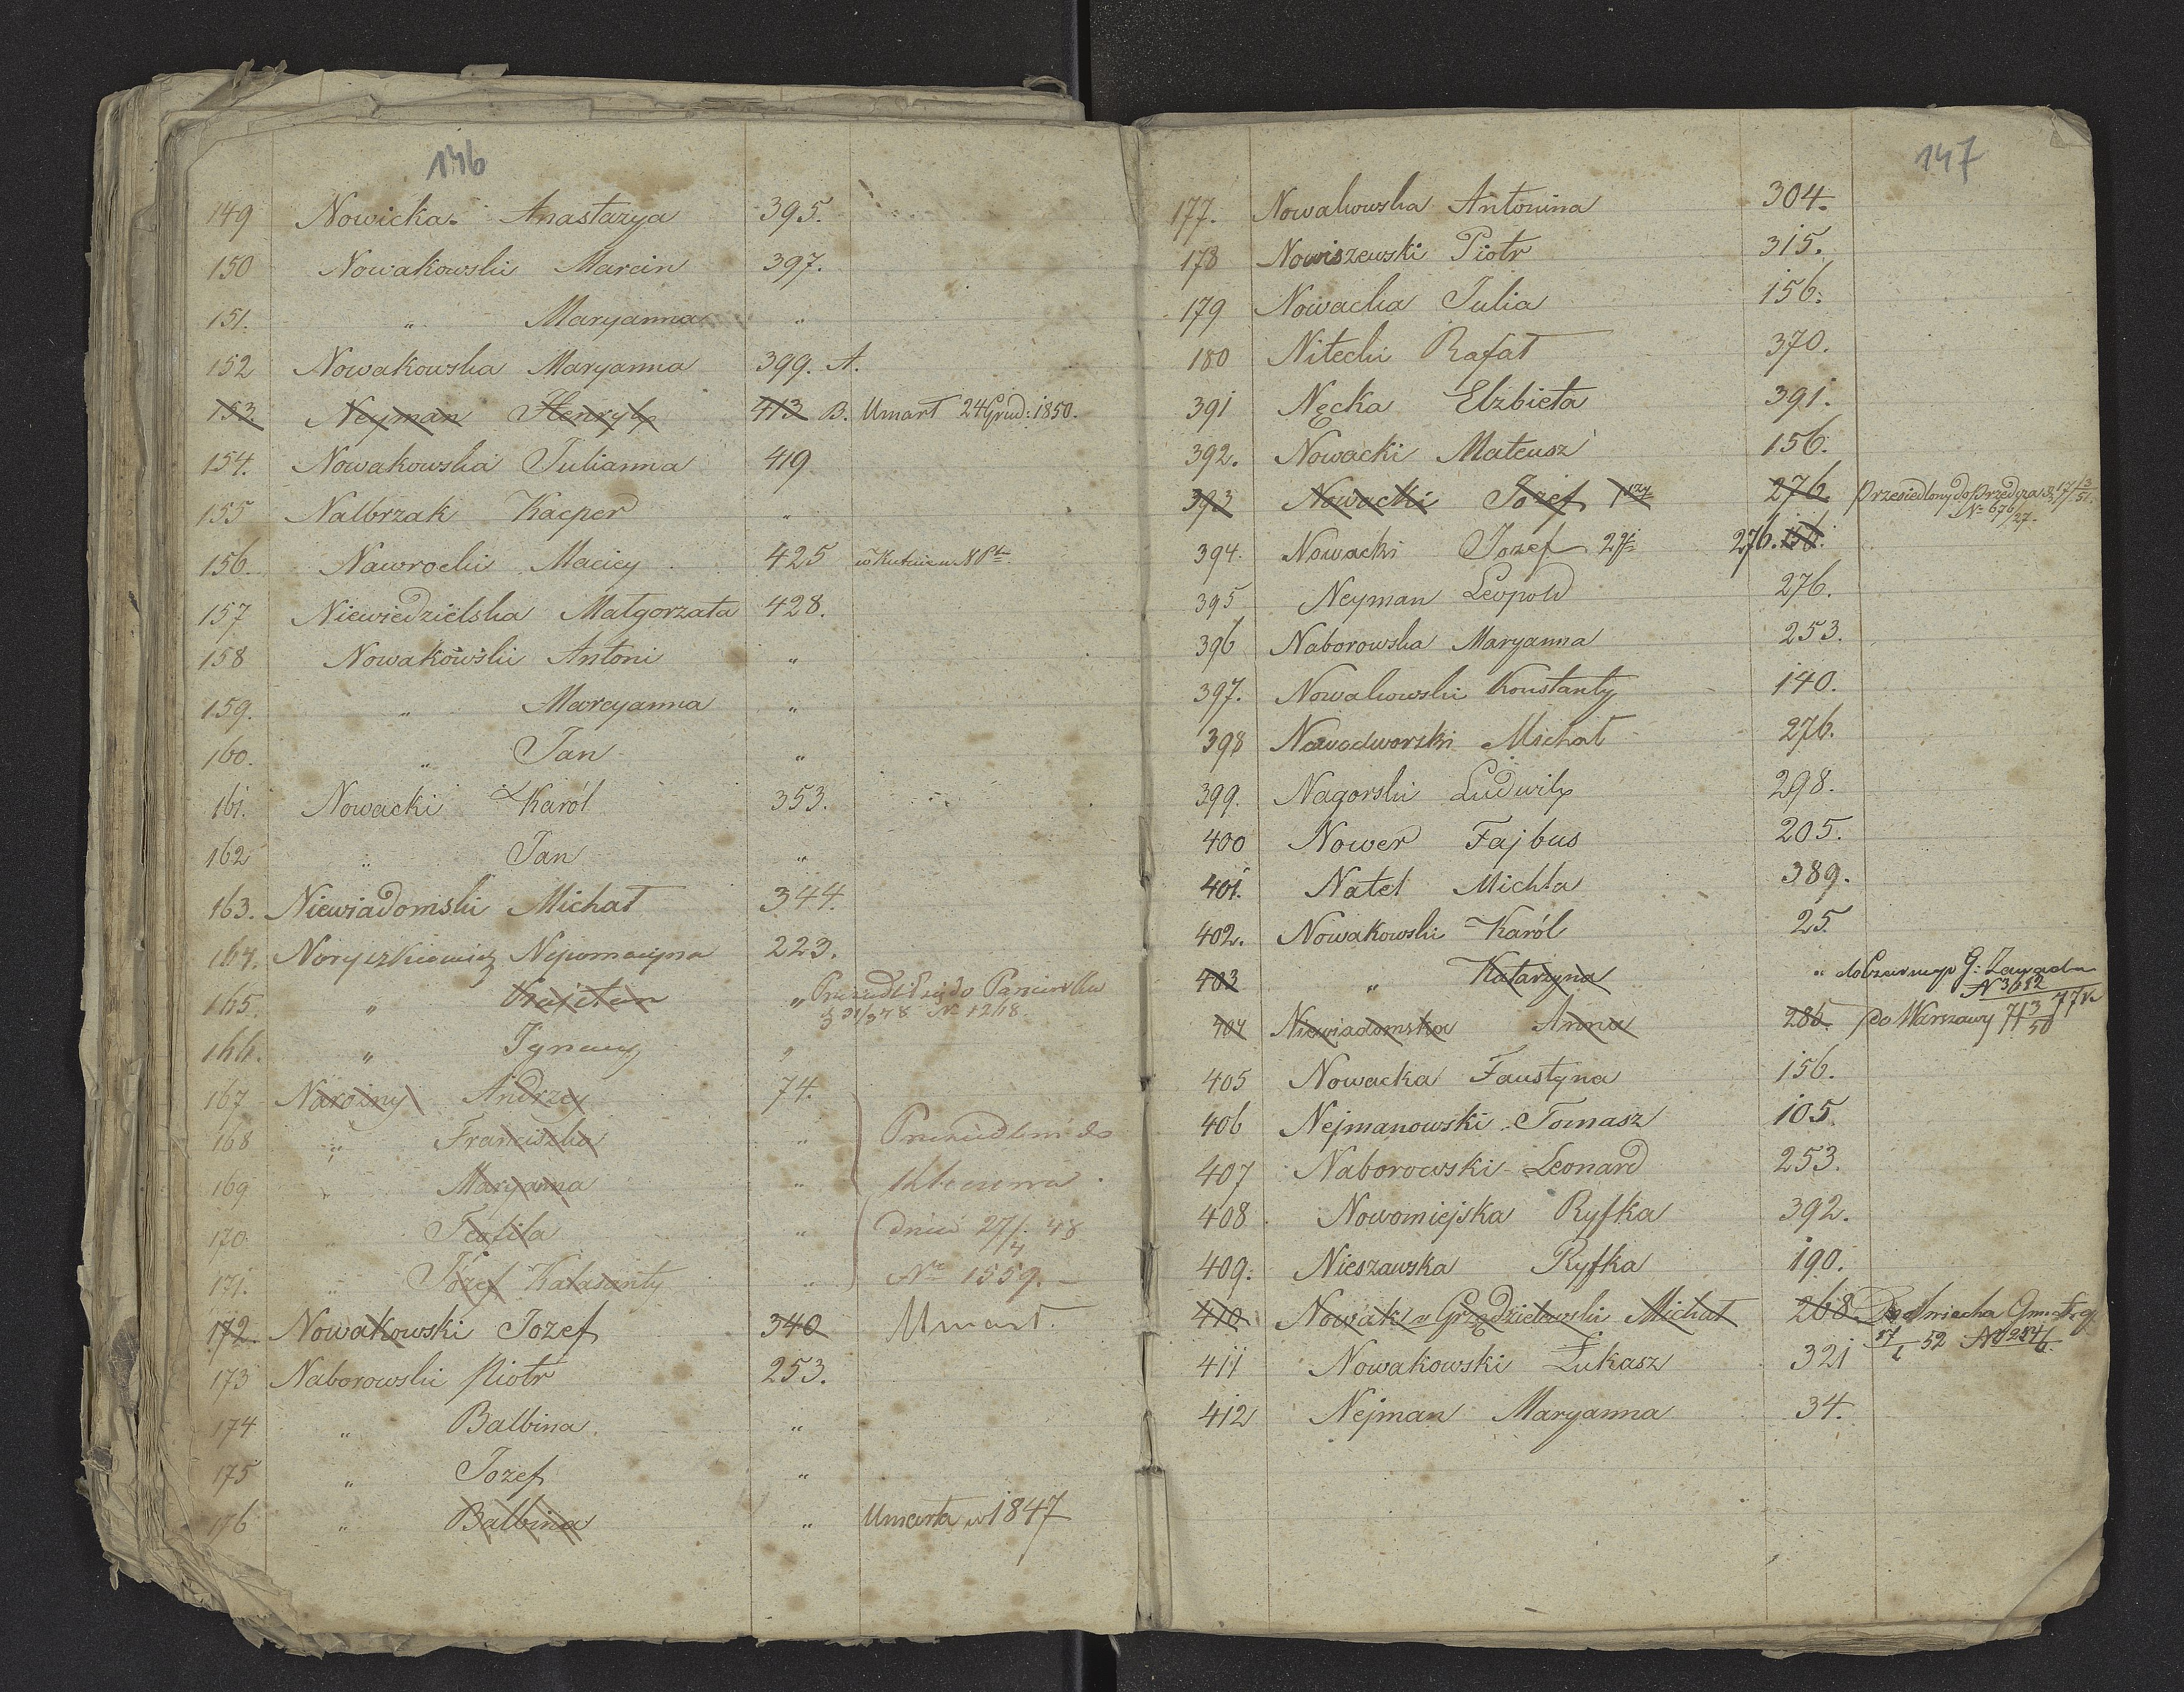 146
149 Nowicka Anastazya 395.
150 Nowakowski Marcin 397.
151. " Maryanna "
152 Nowakowska Maryanna 399. A.
153. Neyman Henryk 413 B. Umarł 24 Grud: 1850.
154. Nowakowska Julianna 419
155 Nalbrzak Kacper "
156. Nawrocki Maciey 425
157 Niewiedzielska Małgorzata 428.
158 Nowakowski Antoni "
159. " Maryanna "
160. " Jan "
161. Nowacki Karól 353.
162 " Jan "
163. Niewiadomski Michał 344.
164. Noryszkiewicz Nepomucyna 223.
165. " Kajetan " Przesiedlił się do
31/3 48 No 1268.
166. " Ignacy "
167 Narożny Andrzey 74.
168 " Franciszka " Przesiedleni do
169 " Maryanna "
170 " Teofila " dnia 27/4 48
171. " Józef Kalasanty " No 1559.
172. Nowakowski Jozef 340 Umarł.
173 Naborowski Piotr 253.
174 " Balbina "
175 " Jozef "
176 " Balbina " Umarła w 1847
147
177. Nowakowska Antonina 304.
178 Nowiszewski Piotr 315.
179 Nowacka Julia 156.
180 Nitecki Rafał 370.
391 Nęcka Elzbieta 391.
392. Nowacki Mateusz 156.
393 Nowacki Jozef 1szy 276. Przesiedlony do
No 676/27.
394. Nowacki Jozef 2gi 276. 156.
395 Neyman Leopold 276.
396 Naborowska Maryanna 253.
397. Nowakowski Konstanty 140.
398 Nowodworski Michał 276.
399. Nagorski Ludwik 298.
400 Nower Fajbus 205.
401. Natel Michla 389.
402. Nowakowski Karól 25.
403 " Katarzyna " do G: Zawada
No 3612
404 Niewiadomska Anna 286. do Warszawy
405 Nowacka Faustyna 156.
406 Nejmanowski Tomasz 105.
407 Naborowski Leonard 253.
408 Nowomiejska Ryfka 392.
409. Nieszawska Ryfka 190.
410 Nowak v Grzędzielewski Michał 268.
411 Nowakowski Łukasz 321 52 No
412 Nejman Maryanna 34.